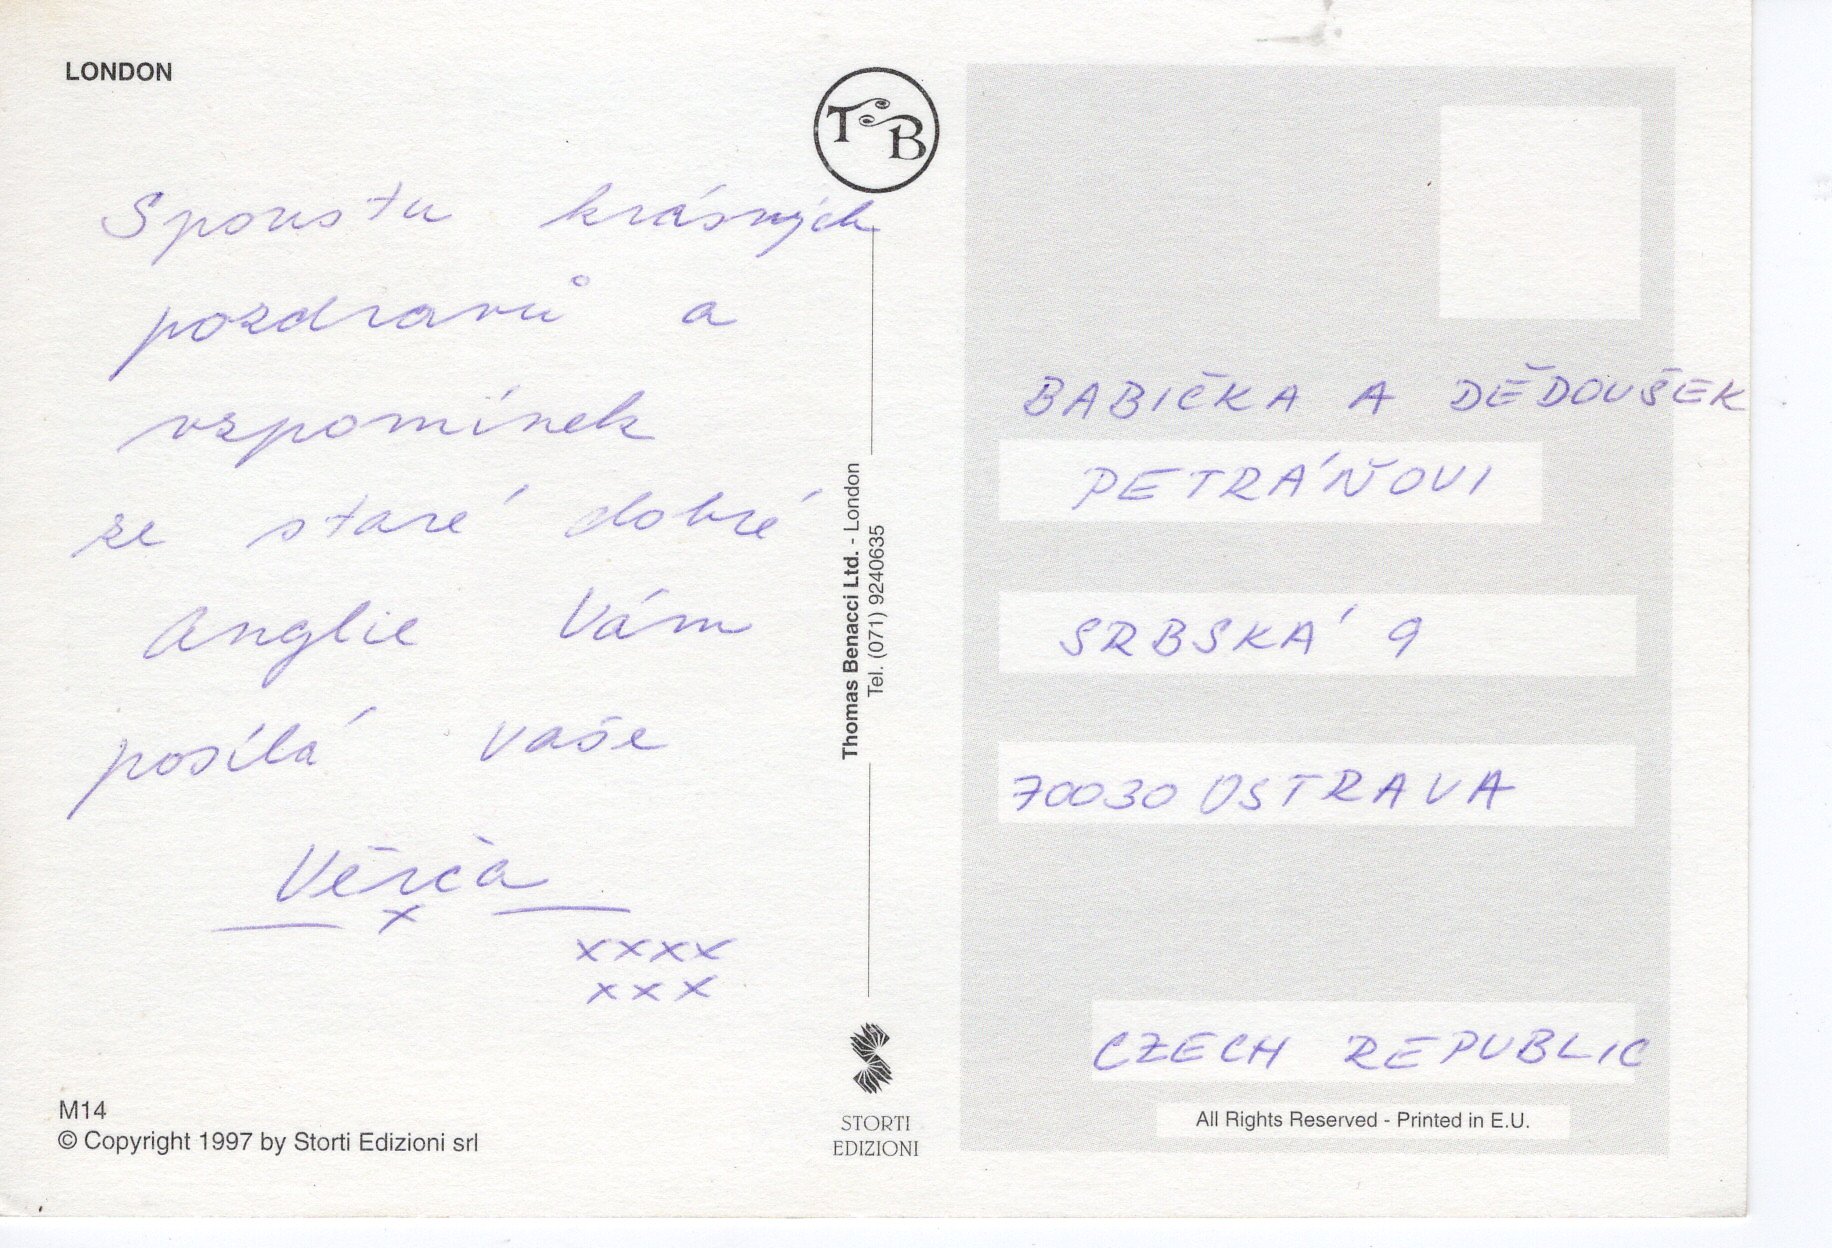 LONDON
TB
Spoustu krásných
pozdravů a
vzpomínek
ze staré dobré
Anglie Vám
posílá vaše
Věrča
x
xxxx
xxx
M14
© Copyright 1997 by Storti Edizioni srl
Thomas Benacci Ltd. - London
Tel. (071) 9240635
STORTI
EDIZIONI
BABIČKA A DĚDOUŠEK
PETRÁŇOVI
SRBSKÁ 9
70030 OSTRAVA
CZECH REPUBLIC
All Rights Reserved - Printed in E.U.